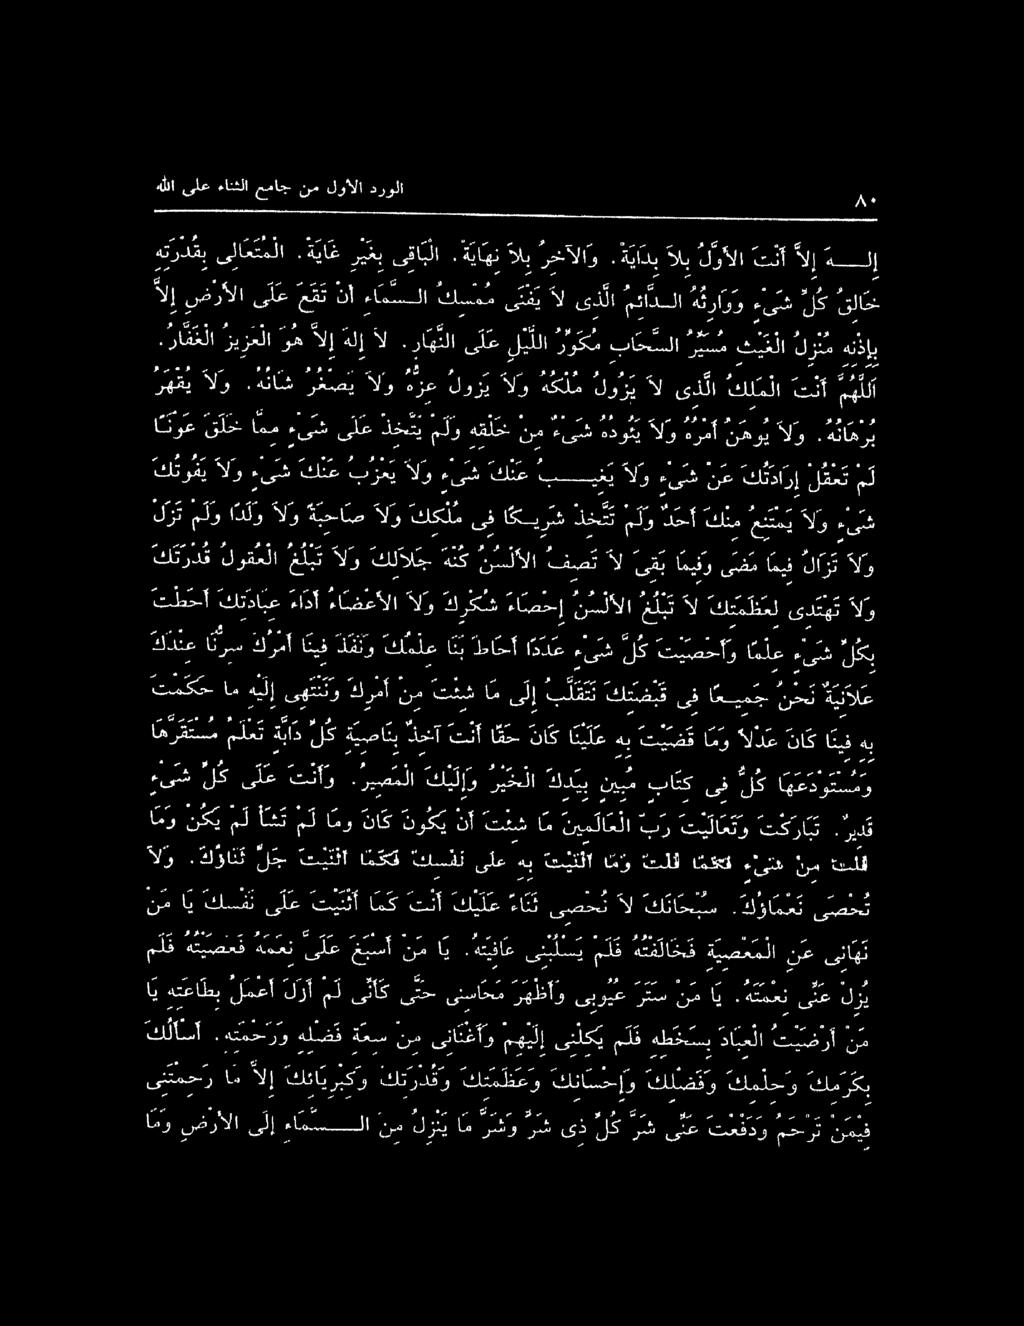 ٨٠ الورد الأول من جامع الثناء على الله
إلــه إلاَّ أَنْتَ الأَوَّلُ بِلاَ بِدَايَةْ. وَالآخِرُ بِلاَ نِهَايَةْ. الْبَاقِى بِغَيْرِ غَايَةْ. الْمُتَعَالِى بِقُدْرَتِهِ
خَالِقُ كُلِّ شَىْءٍ وَوَارِثُهُ الــدَّائِمُ الَّذِى لاَ يَفْنَى مُمْسِكُ الــسَّمَاءِ أَنْ تَقَعَ عَلَى الأَرْضِ إِلاَّ
بِإِذْنِهِ مُنْزِلُ الْغَيْثِ مُسَيِّرُ السَّحَابِ مُكَوِّرُ اللَّيْلِ عَلَى النَّهَارِ. لاَ إِلهَ إِلاَّ هُوَ الْعَزِيزُ الْغَفَّارُ.
اَللَّهُمَّ أَنْتَ الْمَلِكُ الَّذِى لاَ يَزُولُ مُلْكُهُ وَلاَ يَزُولُ عِزُّهُ وَلاَ يَصْغُرُ شَانُهُ. وَلاَ يُقْهَرُ
بُرْهَانُهُ. وَلاَ يُوهَنُ أَمْرُهُ وَلاَ يَئُودُهُ شَىْءٌ مِنْ خَلْقِهِ وَلَمْ يَتَّخِذْ عَلَى شَىْءٍ مِمَّا خَلَقَ عَوْنًــا
لَمْ تَعْقُلْ إِرَادَتُكَ عَنْ شَىْءٍ وَلاَ يَغِيــبُ عَنْكَ شَىْءٍ وَلاَ يَعْزُبُ عَنْكَ شَىْءٍ وَلاَ يَفُوتُكَ
شَىْءٍ وَلاَ يَمْتَنِعُ مِنْكَ أَحَدٌ وَلَمْ تَتَّخِذْ شَرِيــكًا فِى مُلْكِكَ وَلاَ صَاحِبَةً وَلاَ وَلَدًا وَلَمْ تَزَلْ
وَلاَ تَزَالُ فِيمَا مَضَى وَفِيمَا بَقِىَ لاَ تَصِفُ الأَلْسُنُ كُنْهَ جَلاَلِكَ وَلاَ تَبْلُغُ الْعُقُولُ قُدْرَتَكَ
وَلاَ تَهْتَدِى لِعَظَمَتِكَ لاَ تَبْلُغُ الأَلْسُنُ إِحْصَاءَ شُكْرِكَ وَلاَ الأَعْضَاءُ أَدَاءَ عِبَادَتِكَ أَحَطْتَ
بِكُلِّ شَىْءٍ عِلْمًا وَأَحْصَيْتَ كُلَّ شَىْءٍ عَدَدًا أَحَاطَ بِنَا عِلْمُكَ وَنَفَذَ فِينَا أَمْرُكَ سِرُّنَا عِنْدَكَ
عَلاَنِيَةٌ نَحْنُ جَمِيــعًا فِى قَبْضَتِكَ نَتَقَلَّبُ إِلَى مَا شِئْتَ مِنْ أَمْرِكَ وَنَنْتَهِى إِلَيْهِ مَا حَكَمْتَ
بِهِ فِينَا كَانَ عَدْلاً وَمَا قَضَيْتَ بِهِ عَلَيْنَا كَانَ حَقًّا أَنْتَ آخِذٌ بِنَاصِيَةِ كُلِّ دَابَّةٍ تَعْلَمُ مُسْتَقَرَّهَا
وَمُسْتَوْدَعَهَا كُلٌّ فِى كِتَابٍ مُبِينٍ بِيَدِكَ الْخَيْرُ وَإِلَيْكَ الْمَصِيرُ. وَأَنْتَ عَلَى كُلِّ شَىْءٍ
قَدِيرٌ. تَبَارَكْتَ وَتَعَالَيْتَ رَبَّ الْعَالَمِينَ مَا شِئْتَ أَنْ يَكُونَ كَانَ وَمَا لَمْ تَشَأْ لَمْ يَكُنْ وَمَا
قُلْتَ مِنْ شَىْءٍ فَكَمَا قُلْتَ وَمَا أَثْنَيْتَ بِهِ عَلَى نَفْسِكَ فَكَمَا أَثْنَيْتَ جَلَّ ثَنَاؤُكَ. وَلاَ
تُحْصَى نَعْمَاؤُكَ. سُبْحَانَكَ لاَ نُحْصِى ثَنَاءً عَلَيْكَ أَنْتَ كَمَا أَثْنَيْتَ عَلَى نَفْسِكَ يَا مَنْ
نَهَانِى عَنِ الْمَعْصِيَةِ فَخَالَفْتُهُ فَلَمْ يَسْلُبْنِى عَافِيَتَهُ. يَا مَنْ أَسْبَغَ عَلَىَّ نِعَمَهُ فَعَصَيْتُهُ فَلَم
يُزِلْ عَنِّى نِعْمَتَهُ. يَا مَنْ سَتَرَ عُيُوبِى وَأَظْهَرَ مَحَاسِنِى حَتَّى كَأَنِّى لَمْ أَزَلْ أَعْمَلُ بِطَاعَتِهِ يَا
مَنْ أَرْضَيْتُ الْعِبَادَ بِسَخَطِهِ فَلَم يَكِلْنِى إِلَيْهِمْ وَأَغْنَانِى مِنْ سِعَةِ فَضْلِهِ وَرَحْمَتِهِ. أَسْأَلُكَ
بِكَرَمِكَ وَحِلْمِكَ وَفَضْلِكَ وَإِحْسَانِكَ وَعَظَمَتِكَ وَقُدْرَتِكَ وَكِبْرِيَائِكَ إِلاَّ مَا رَحِمْتَنِى
فِيْمَنْ تَرْحَمُ وَدَفَعْتَ عَنِّى شَرَّ كُلِّ ذِى شَرٍّ وَشَرَّ مَا يَنْزِلُ مِنَ الــسَّمَاءِ إِلَى الأَرْضِ وَمَا